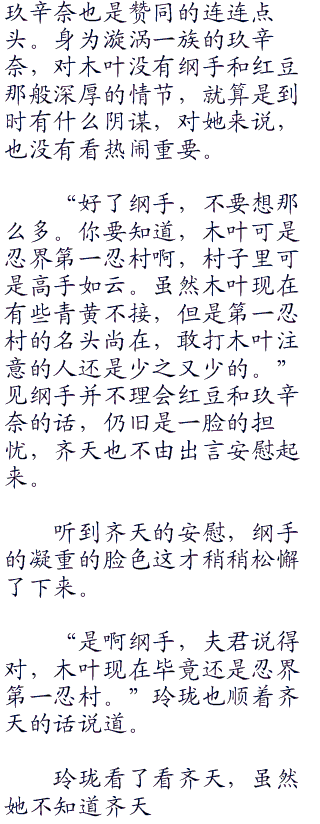 玖辛奈也是赞同的连连点
头。身为漩涡一族的玖辛
奈，对木叶没有纲手和红豆
那般深厚的情节，就算是到
时有什么阴谋，对她来说，
也没有看热闹重要。
“好了纲手，不要想那
么多。你要知道，木叶可是
忍界第一忍村啊，村子里可
是高手如云。虽然木叶现在
有些青黄不接，但是第一忍
村的名头尚在，敢打木叶注
意的人还是少之又少的。”
见纲手并不理会红豆和玖辛
奈的话，仍旧是一脸的担
忧，齐天也不由出言安慰起
来。
听到齐天的安慰，纲手
的凝重的脸色这才稍稍松懈
了下来。
“是啊纲手，夫君说得
对，木叶现在毕竟还是忍界
第一忍村。”玲珑也顺着齐
天的话说道。
玲珑看了看齐天，虽然
她不知道齐天